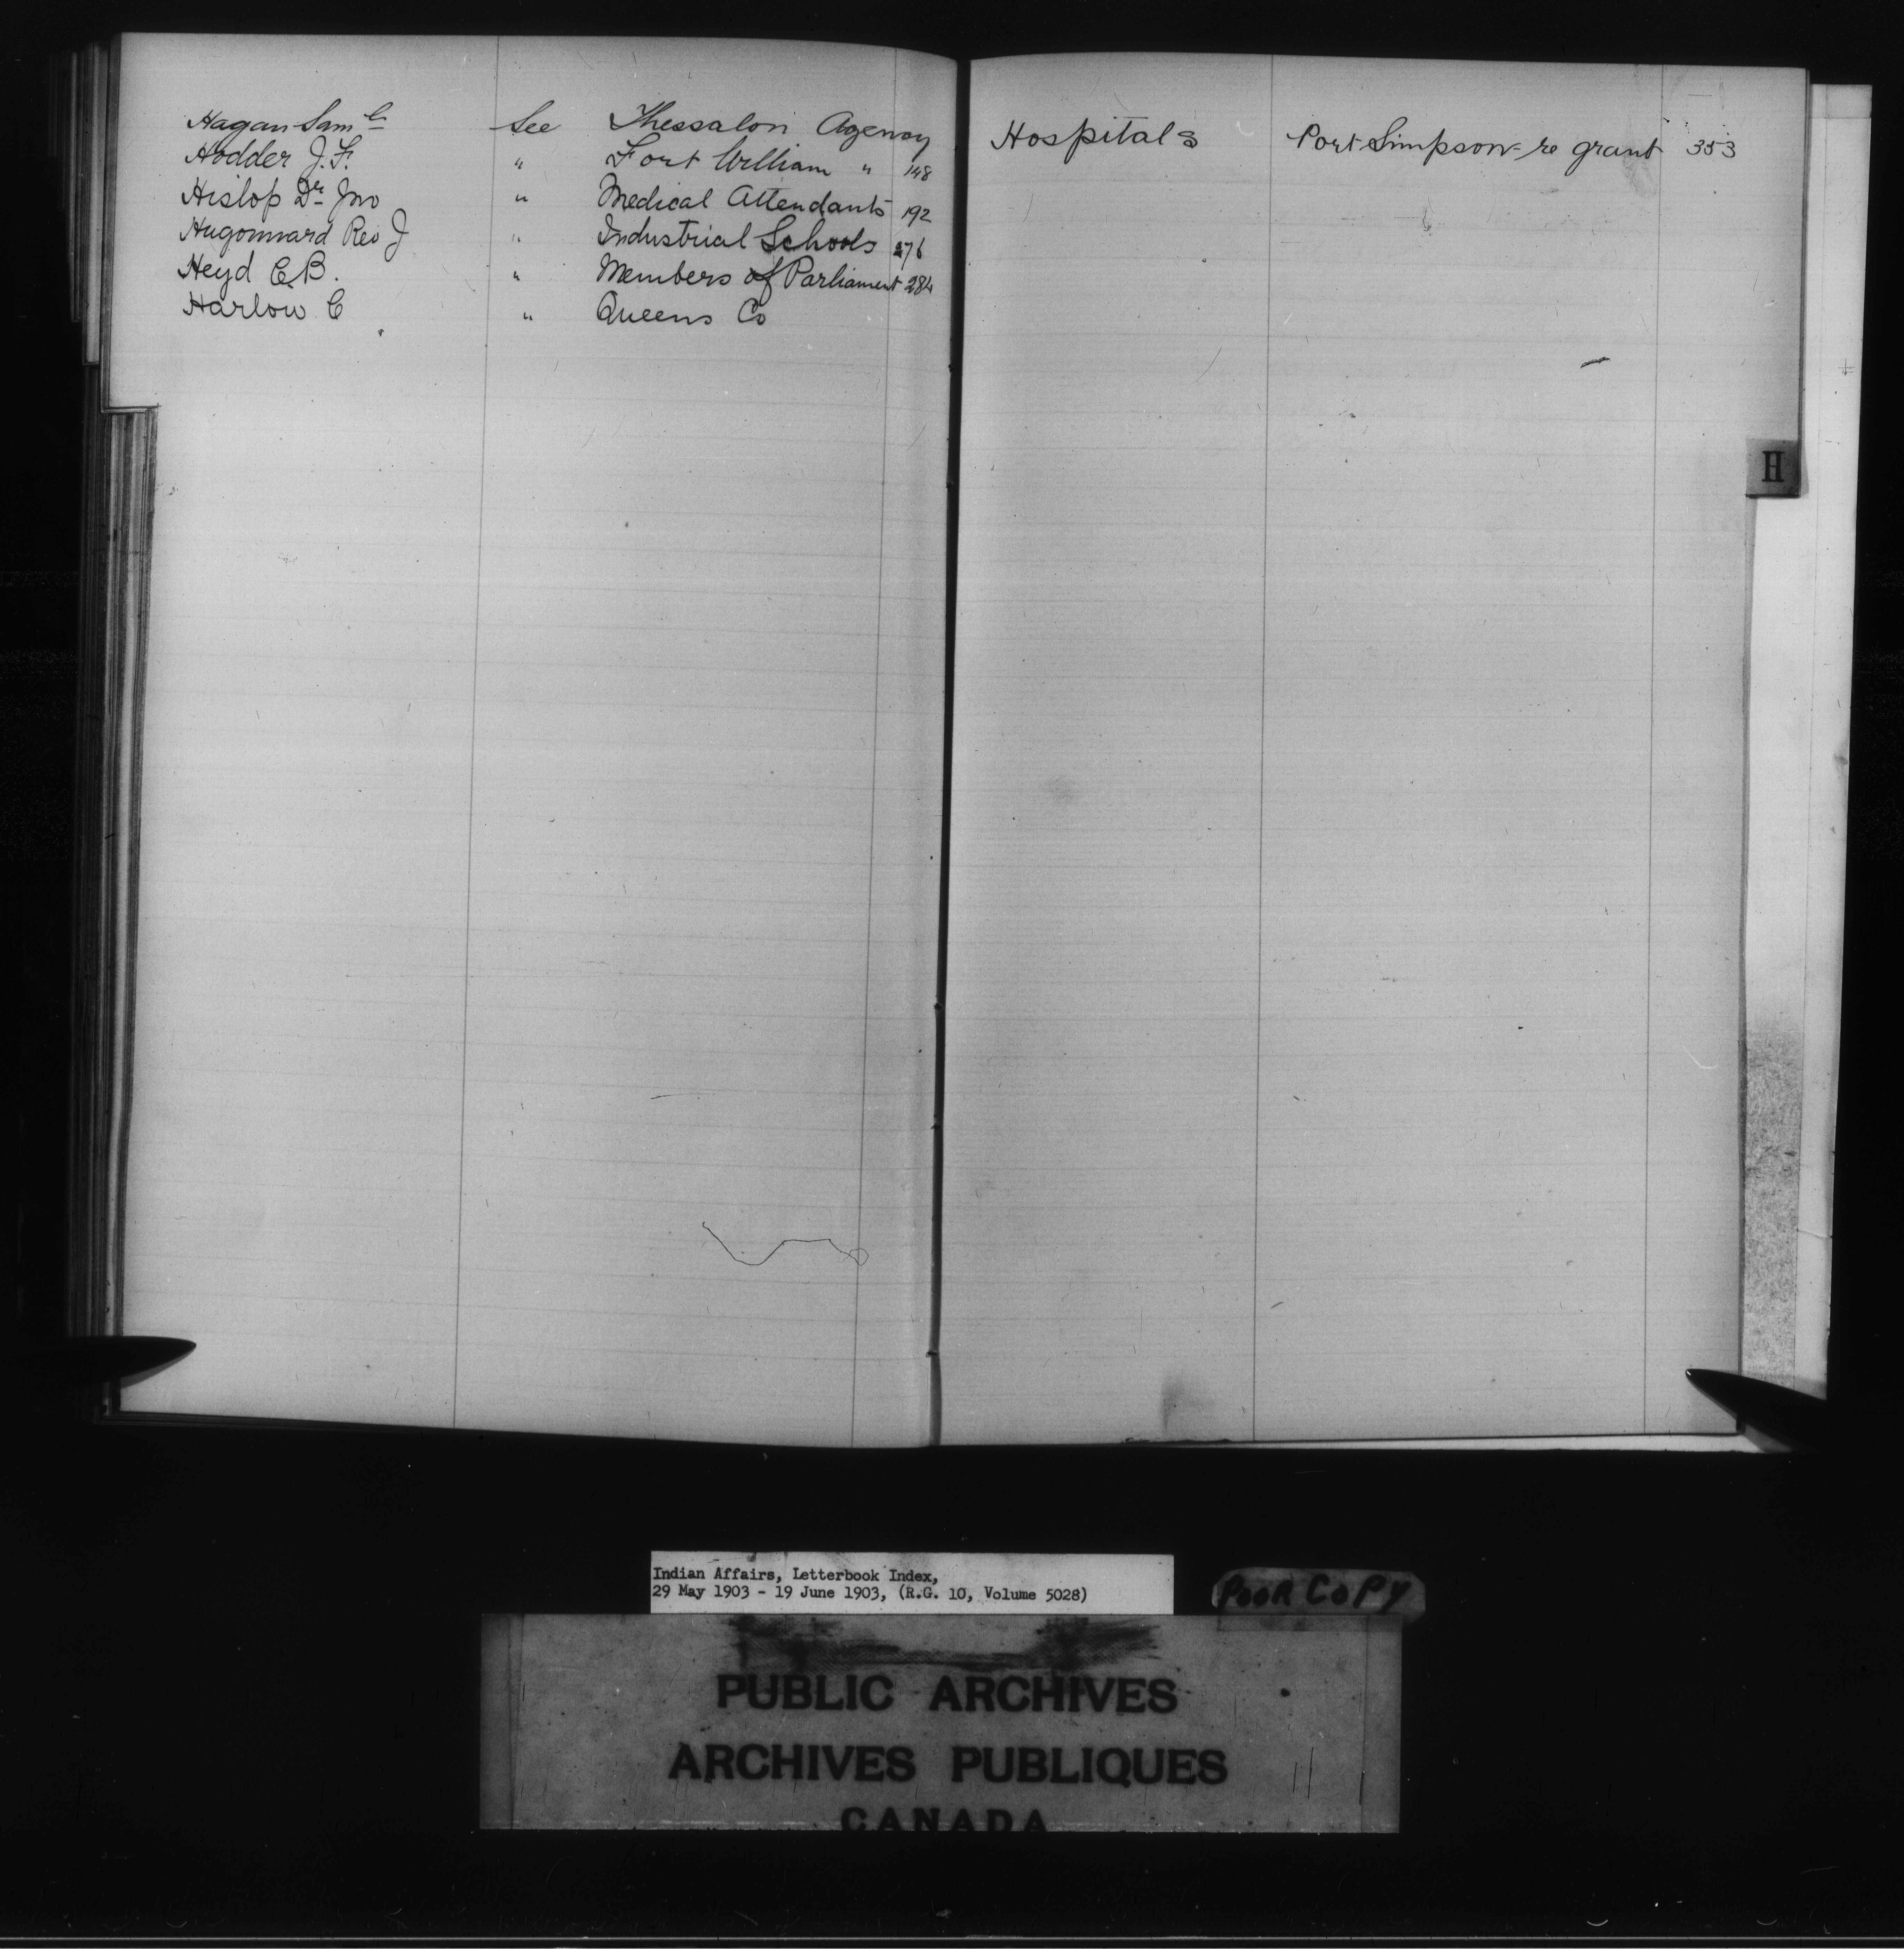 Hagan Saml See Thessalon Agency
Hodder J. F. " Fort William " 148
Hislop Dr Jno " Medical Attendants 192
Hugonnard Rev J " Industrial Schools 276
Heyd C.B. " Members of Parliament 284
Harlow C " Queens Co
Hospitals Port Simpson - re grant 353
H
Indian Affairs, Letterbook Index,
29 May 1903 - 19 June 1903, (R.G. 10, Volume 5028)
POOR COPY
PUBLIC ARCHIVES
ARCHIVES PUBLIQUES
CANADA